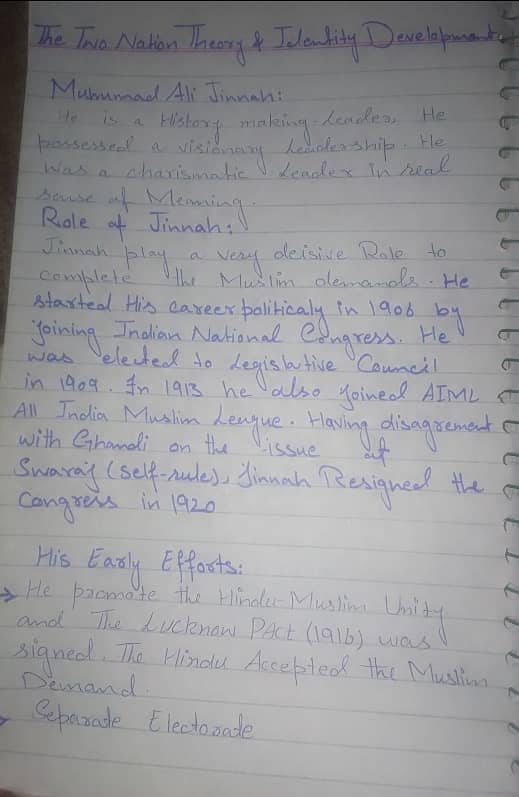 The Two Nation Theory & Identity Development
Muhummad Ali Jinnah:
He is a History making-Leader, He
possessed a visionary Leadership. He
was a charismatic Leader in real
sense of Meaning.
Role of Jinnah:
Jinnah play a very deisive Role to
complete the Muslim demands. He
started His career politicaly in 1906 by
joining Indian National Congress. He
was elected to Legislative Council
in 1909. In 1913 he also joined AIML
All India Muslim League. Having disagreement
with Ghandi on the issue of
Swaraj (self-rule), Jinnah Resigned the
Congress in 1920
His Early Efforts:
→ He promote the Hindu-Muslim Unity
and The Lucknow PAct (1916) was
signed. The Hindu Accepted the Muslim
Demand.
Separade Electorade